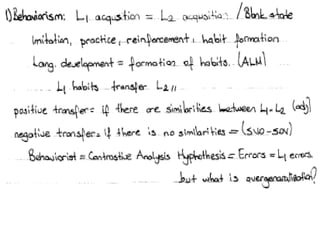 1) Behaviorism: L1 acqustion = L2 acqusition / Blank state
Imitation, practice, reinforcement, habit formation
Lang. development = formation of habits. (ALM)
L1 habits transfer L2 //
positive transfer = if there are similarities between L1-L2 (adj)
negative transfer = if there is no similarities = (SVO-SOV)
Behaviorist = Contrastive Analysis Hyphothesis = Errors = L1 errors
but what is overgeneralisation?